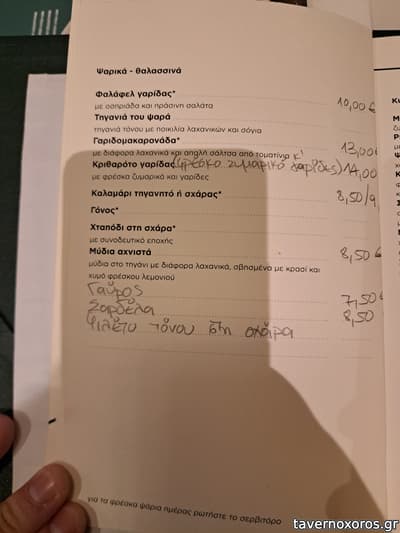 Ψαρικά - θαλασσινά
Φαλάφελ γαρίδας*
με οσπριάδα και πράσινη σαλάτα
10,00 €
Τηγανιά του ψαρά
τηγανιά τόνου με ποικιλία λαχανικών και σόγια
Γαριδομακαρονάδα*
13,00€
με διάφορα λαχανικά και απαλή σάλτσα από τοματίνια κ'
Κριθαρότο γαρίδας (φρέσκο ζυμαρικό γαρίδες) 14,00
με φρέσκα ζυμαρικά και γαρίδες
Καλαμάρι τηγανητό ή σχάρας*
8,50/9
Γόνος*
Χταπόδι στη σχάρα*
με συνοδευτικό εποχής
Μύδια αχνιστά
8,50 €
μύδια στο τηγάνι με διάφορα λαχανικά, σβησμένα με κρασί και
χυμό φρέσκου λεμονιού
Γαύρος
7,50€
Σαρδέλα
8,50
Φιλέτο τόνου στη σχάρα
για τα φρέσκα ψάρια ημέρας ρωτήστε το σερβιτόρο
tavernoxoros.gr